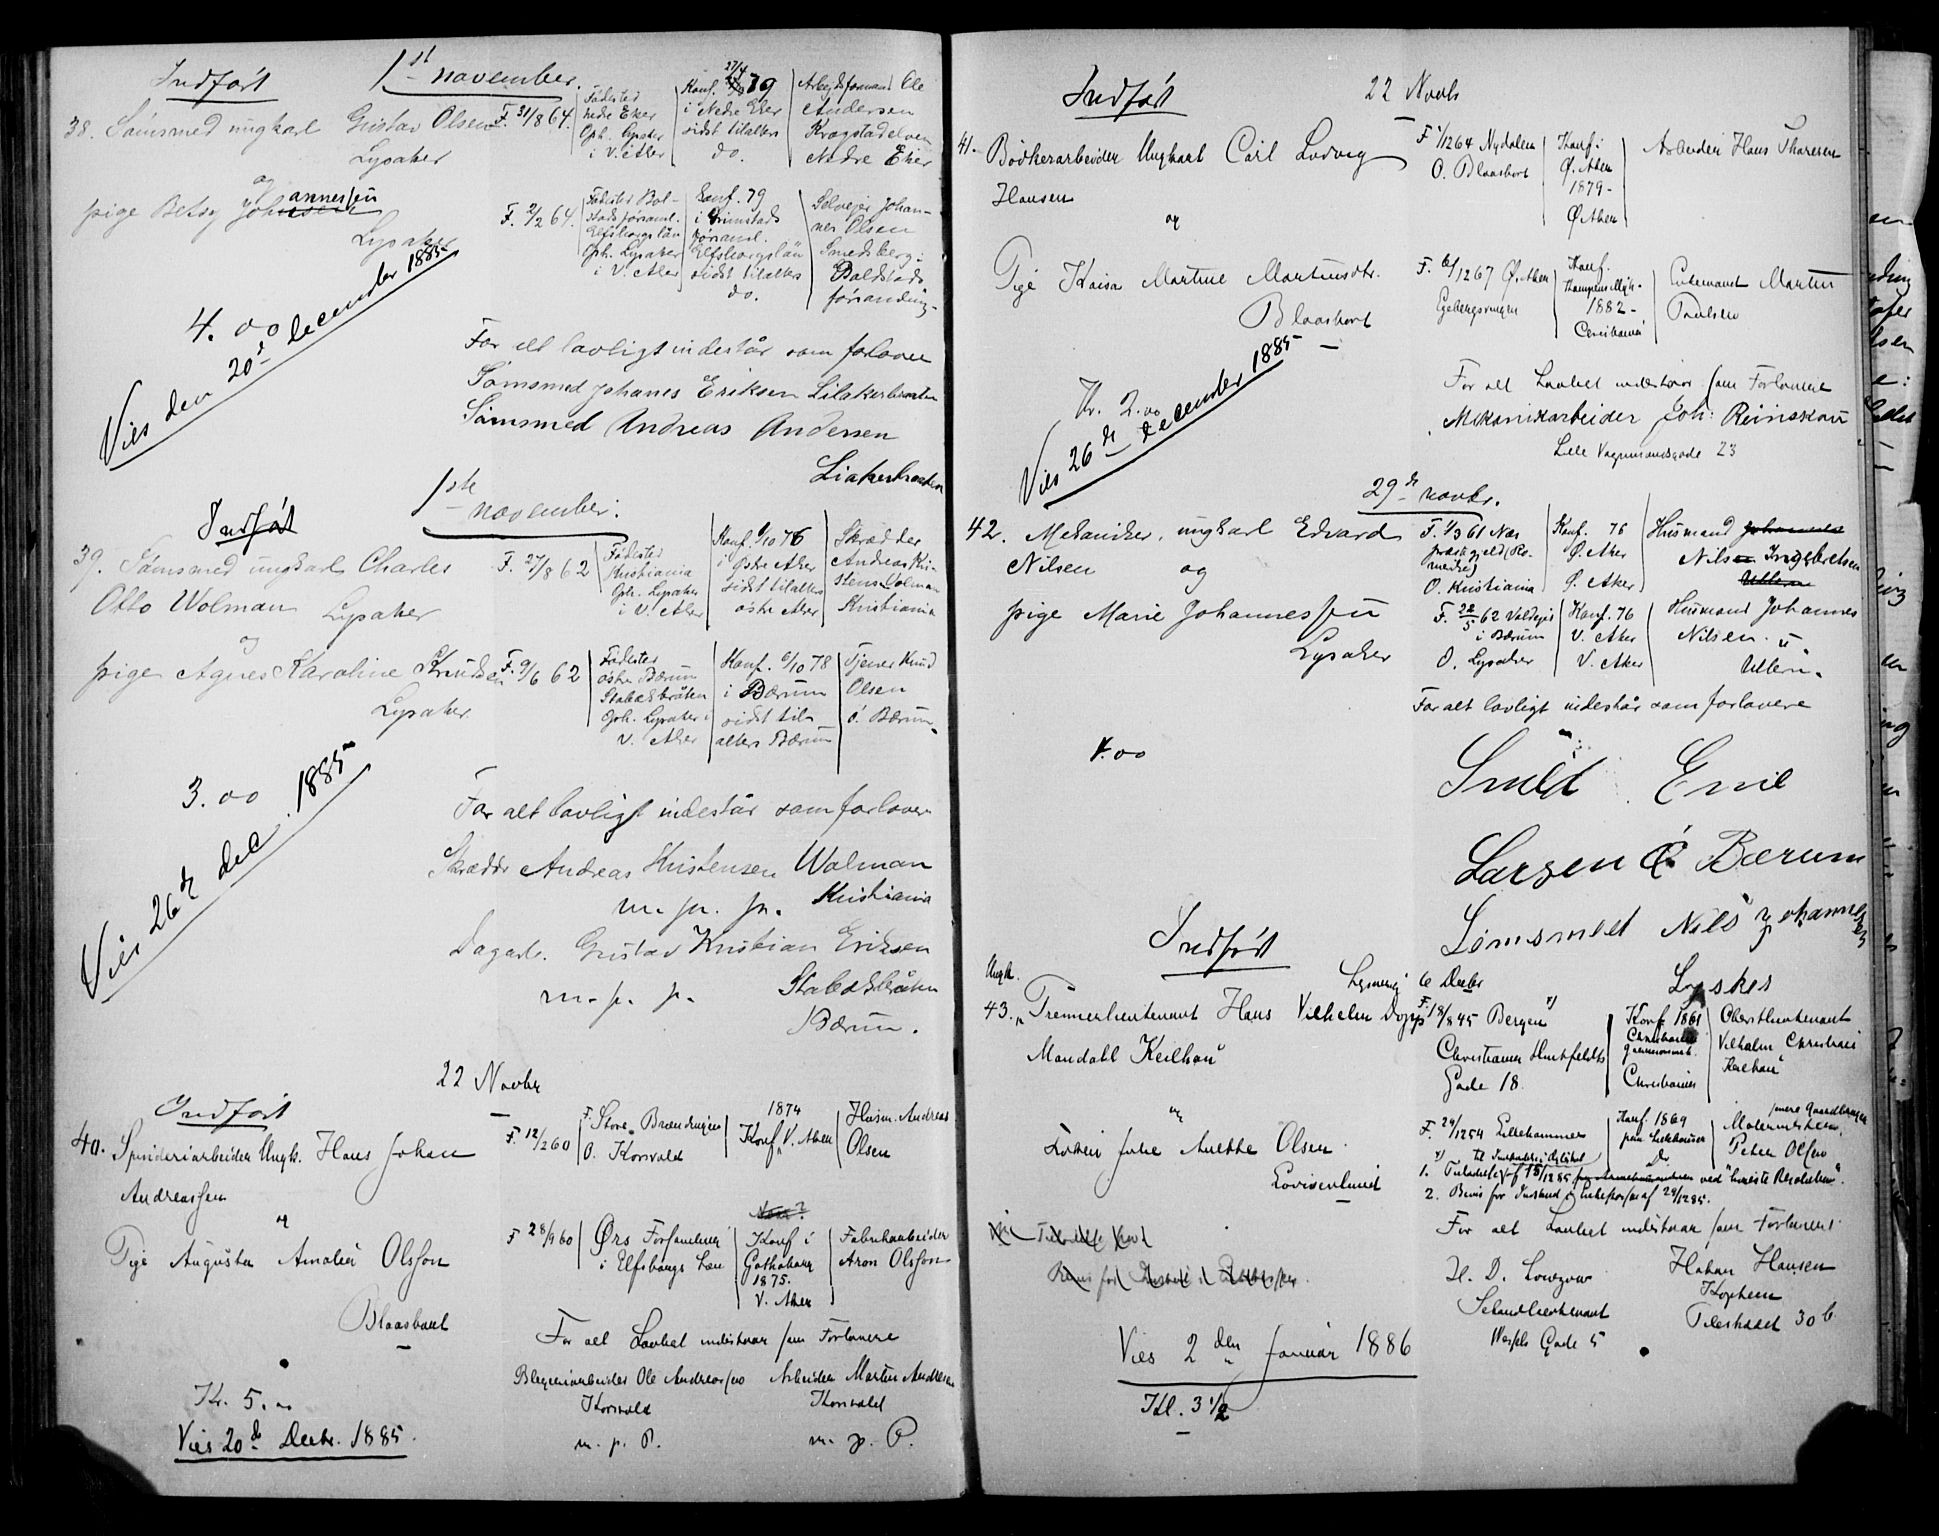 Indført
1st november.
38. Sømsmed ungkarl Gustav Olsen
Lysaker
F. 31/8 64.
Fødested
nedre Eker
Oph. Lysaker
i V. Aker
Konf. 27/4 79
i Nedre Eker
sidst tilalters
do.
Arbejdsformand Ole
Andersen
Krogstadelven
Nedre Eker
og
pige Betsy Johannessen
Lysaker
F. 2/2 64.
Fødested Bol-
stads församl.
Elfsborgslän
Oph. Lysaker
i V. Aker
Konf. 79
i Grinstads
församl.
Elfsborgslän
sidst tilalters
do.
Selvejer Johan-
nes Olsen
Smedberg i
Boldstads
församling
4. 00
Viet den 20de december 1885
For alt lovligt indestår som forlovere
Sømsmed Johanes Eriksen Lilakerbraaten
Sømsmed Andreas Andersen
Liakerbraaten
Indført
1ste november.
39. Sømsmed ungkarl Charles
Otto Wolman Lysaker
F. 27/8 62
Fødested
Kristiania
Oph. Lysaker
i V. Aker
Konf. 1/10 76
i Østre Aker
sidst tilalters
østre Aker
Skrædder
Andreas Kri-
stens. Volman
Kristiania
og
pige Agnes Karoline Knudsen
Lysaker
F. 9/6 62
Fødested
østre Bærum
Stabækbråten
Oph. Lysaker i
V. Aker
Konf. 6/10 78
i Bærum
sidst til-
alters Bærum
Tjener Knud
Olsen
ø. Bærum.
3. 00
Viet 26de dec. 1885
For alt lovligt indestår som forlovere
Skrædder Andreas Kristensen Wolman
m. p. p. Kristiania
Dagarb. Gustav Kristian Eriksen
m. p. p. Stabækbråten
Bærum.
22 Novbr
Indført
40. Spinderiarbeider Ungk. Hans Johan
Andreassen
F. 12/2 60
F. Store Brændingen
O. Korsvold
1874
Konf. V. Aker
Husm. Andreas
Olsen
og
Pige Augusta Amalia Olsson
Blaasbort
F 28/9 60
Ørs Forsamling
i Elfsborgs Læn
Konf i
Gothoborg
1875.
V. Aker
Fabrikarbeider
Aron Olsson
For alt Lovligt indestaar som Forlovere
Blegeriarbeider Ole Andreassen Arbeider Martin Andersen
Korsvold Korsvold
m. p. P. m. p. P.
Kr. 5.00
Viet 20de Decbr. 1885.
Indført
22 Novb
41. Bødkerarbeider Ungkarl Carl Ludvig
Hansen
F 1/12 64 Nydalen
O. Blaasbort
Konf. i
Ø. Aker
1879-
Ø. Aker
Arbeider Hans Thoresen
og
Pige Kaisa Martine Martinsdtr.
Blaasbort
F. 6/12 67 Ø. Aker
Egebergsveien
Konf.
1882-
Christiania
Martin
Paulsen
Kr. 2.00
Viet 26de december 1885
For alt Lovligt indestaar som Forlovere
Mekanikarbeider Joh: Reinskou
Lille Vognmandsgade 23
29de novbr.
42. Mekaniker, ungkarl Edvard
Nilsen
F. 1/3 61 Næs
præstegjeld (Ro-
merike)
O. Kristiania
Konf. 76
Ø. Aker
Ø. Aker
Husmand Johannes
Nils Ingebretsen
Ullern
og
pige Marie Johannessen
Lysaker
F. 22/5 62
i Bærum
O. Lysaker
Konf. 76
V. Aker
V. Aker
Husmand Johannes
Nilsen
Ullern.
For alt lovligt indestår som forlovere
4.00
Smed Emil
Larsen Ø. Bærum
Sømsmed Nils Johannesen
Lysker
Indført
6 Decbr
Ungk.
43. Premierlieutenant Hans Vilhelm Dopp
Mandall Keilhau
F. 18/8 45 Bergen
Christian Huitfeldts
Gade 18
Konf 1861
Christiania
Garnisonsmenh.
Christiania
Oberstlieutenant
Vilhelm Christian
Keilhau
og
Frøken Julie Anette Olsen
Lovisenlund
F. 24/12 54 Lillehammer
Konf. 1869
paa Lillehammer
Do
Peter Olsen
1. Tilladelse af 15/12 85 ved "høieste Resolution".
2. Bevis for Indskud i Enkekassen af 29/12 85.
For alt Lovligt indestaar som Forlovere
H. D. Lowzow
Secondlieutenant
Wessels Gade 5
Håkon Hansen
Kaptein
Pilestrædet 30 b.
Viet 2den Januar 1886
Kl. 3 1/2